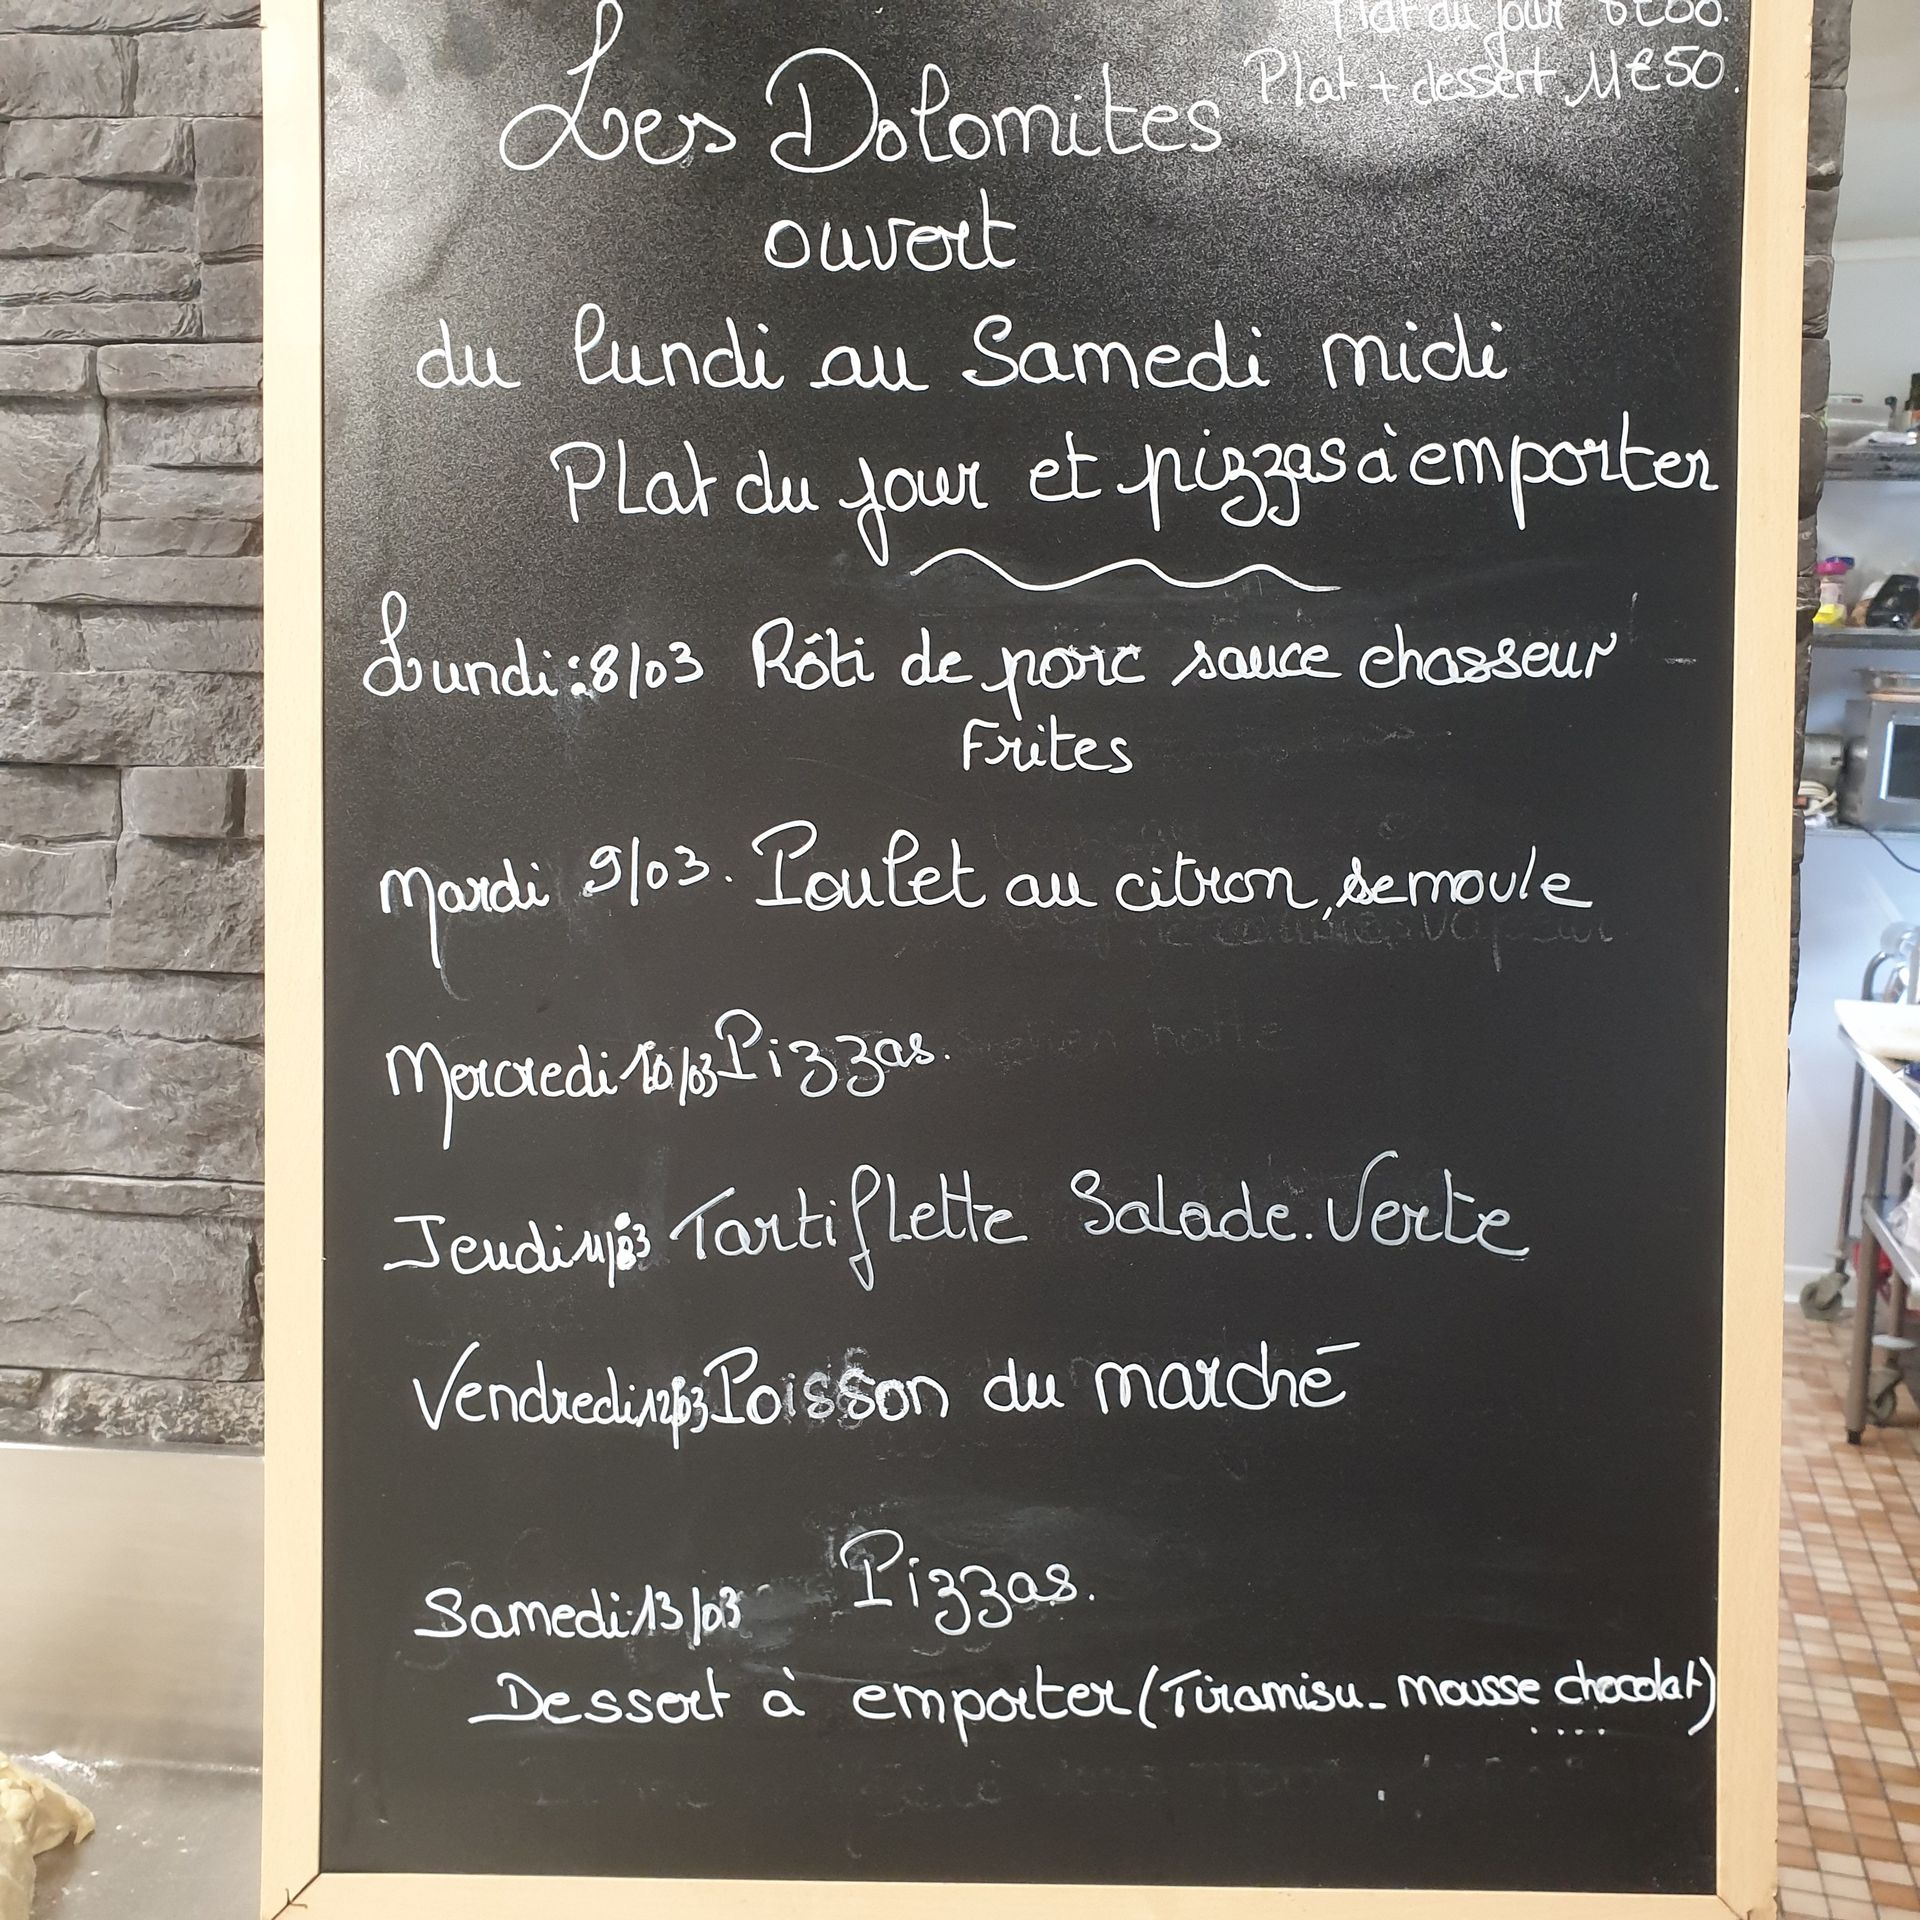 Plat du jour
Plat + dessert 11€50.
Les Dolomites
ouvert
du lundi au Samedi midi
Plat du jour et pizzas à emporter
Lundi : 8/03 Rôti de porc sauce chasseur
Frites
Mardi 9/03. Poulet au citron, semoule
Mercredi 10/03 Pizzas.
Jeudi 11/03 Tartiflette Salade. Verte
Vendredi 12/03 Poisson du marché
Samedi 13/03 Pizzas.
Dessert à emporter (Tiramisu - mousse chocolat)
....